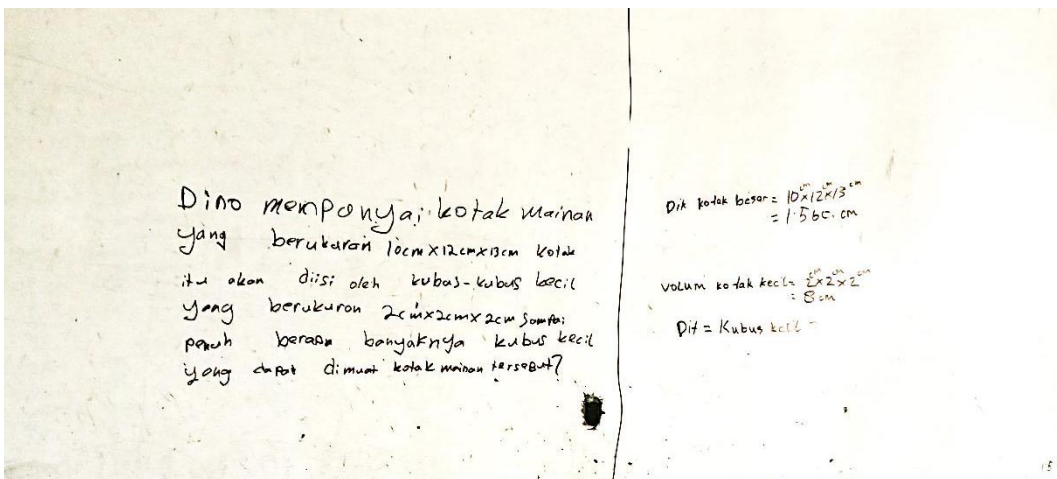 Dino memponyai kotak mainan
yang berukuran 10cm x 12cm x 13cm kotak
itu akan diisi oleh kubus-kubus kecil
yang berukuran 2cm x 2cm x 2cm sampai
penuh berapa banyaknya kubus kecil
yang dapat dimuat kotak mainan tersebut?
Dik kotak besar = 10cm x 12cm x 13cm
= 1.560. cm
volum kotak kecil = 2cm x 2cm x 2cm
= 8 cm
Dit = Kubus kecil =
15